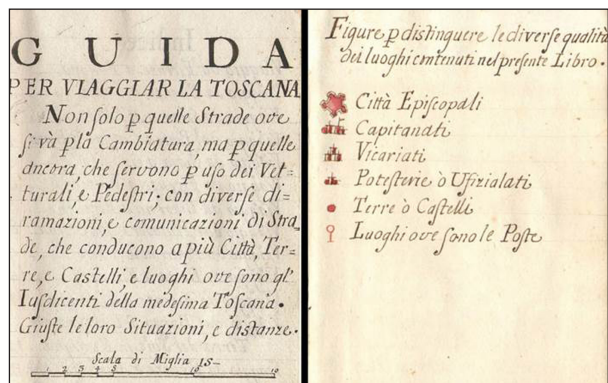 GUIDA
PER VIAGGIAR LA TOSCANA
Non solo p quelle Strade ove
si và p la Cambiatura, ma p quelle
ancora, che servono p uso dei Vet-
turali, e Pedestri; con diverse di-
ramazioni, e comunicazioni di Stra=
de, che conducono a più Città, Ter=
re, e Castelli, e luoghi ove sono gl'
Iusdicenti della medesima Toscana.
Giuste le loro Situazioni, e distanze.
Scala di Miglia 15
1 2 3 4 5 10 15
Figure p distinguere le diverse qualità
dei luoghi contenuti nel presente Libro.
Città Episcopali
Capitanati
Vicariati
Potesterie ò Ufizialati
Terre ò Castelli
Luoghi ove sono le Poste